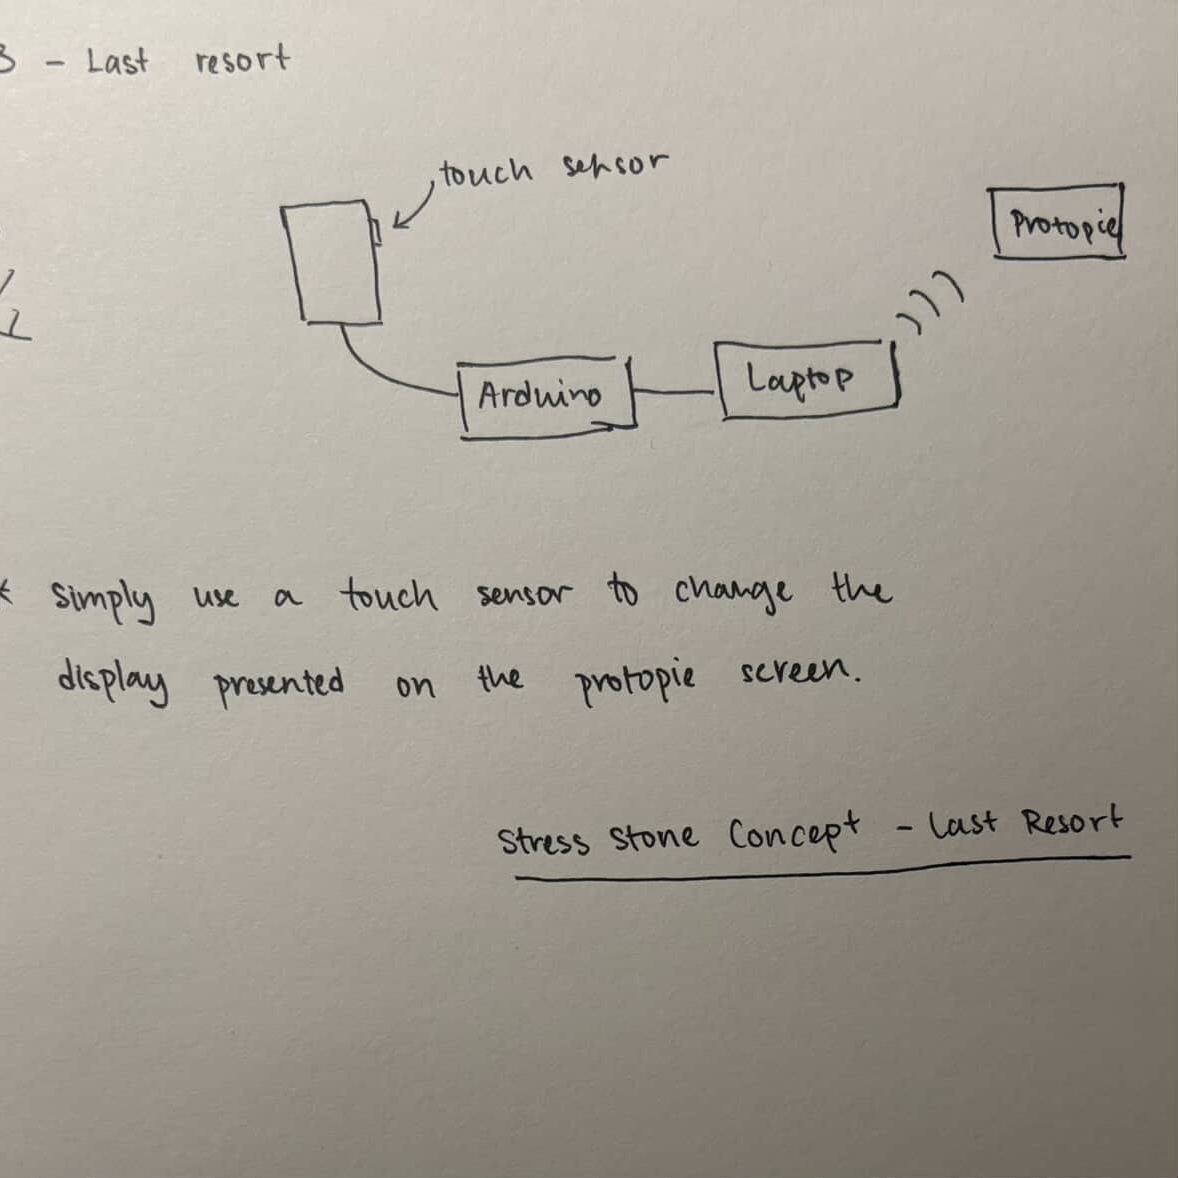 3 - Last resort
touch sensor
Protopie
Arduino
Laptop
* Simply use a touch sensor to change the
display presented on the protopie screen.
Stress Stone Concept - Last Resort